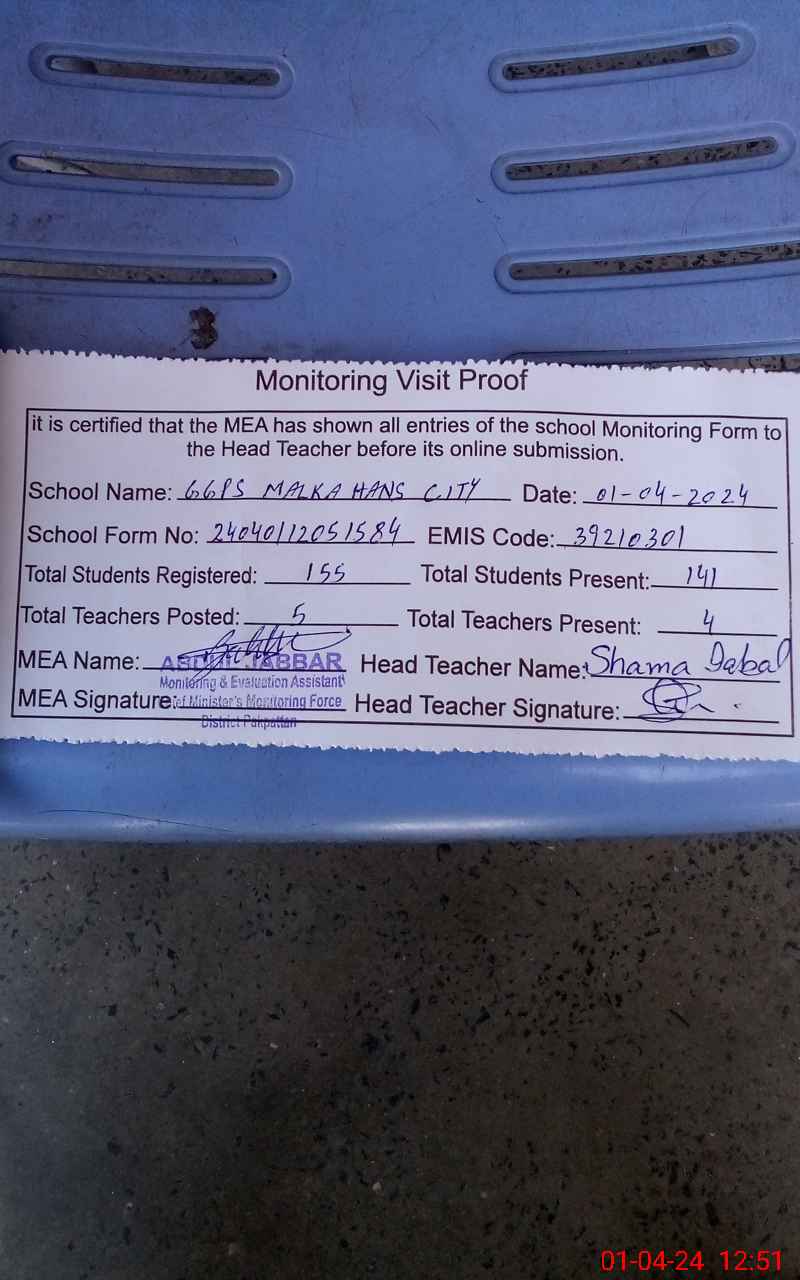 Monitoring Visit Proof
it is certified that the MEA has shown all entries of the school Monitoring Form to
the Head Teacher before its online submission.
School Name: GGPS MALKA HANS CITY Date: 01-04-2024
School Form No: 24040112051584 EMIS Code: 39210301
Total Students Registered: 155 Total Students Present: 141
Total Teachers Posted: 5 Total Teachers Present: 4
MEA Name: ABDUL JABBAR Head Teacher Name: Shama Iqbal
Monitoring & Evaluation Assistant
MEA Signature: Chief Minister's Monitoring Force Head Teacher Signature:
District Pakpattan
01-04-24 12:51